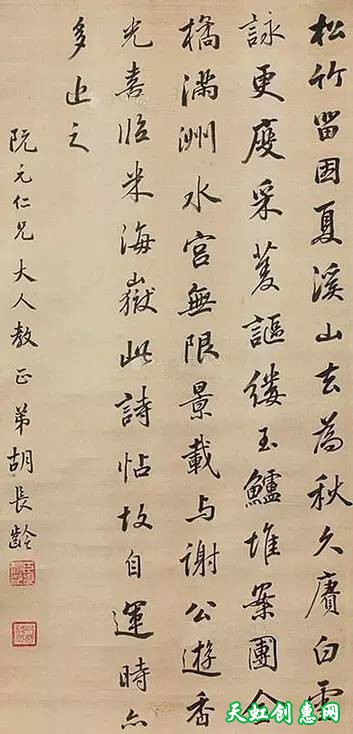 松竹留因夏溪山去為秋久賡白雪
詠更度采菱謳縷玉鱸堆案團金
橘滿洲水宮無限景載与謝公遊香
光喜臨米海嶽此詩帖故自運時亦
多近之
阮元仁兄大人教正弟胡長齡
天虹创惠网